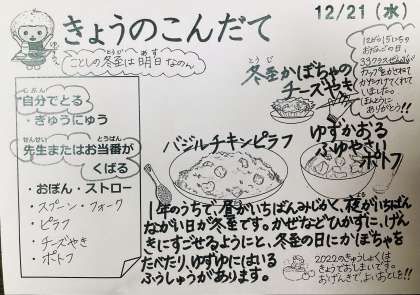 きょうのこんだて
12/21（水）
ことしの冬至は明日なのん
とうじ
あす
自分でとる
じぶん
・ぎゅうにゅう
先生またはお当番が
せんせい
とうばん
くばる
・おぼん・ストロー
・スプーン・フォーク
・ピラフ
・チーズやき
・ポトフ
冬至かぼちゃの
とうじ
チーズやき
バジルチキンピラフ
ゆずかおる
ふゆやさい
ポトフ
カップをかさねて
かたづけてくれて
いました。
ほんとうに
ありがとう!!
1年のうちで昼がいちばんみじかく、夜がいちばん
ながい日が冬至です。かぜなどひかずに、げん
きにすごせるようにと、冬至の日にかぼちゃを
たべたり、ゆずゆにはいる
ふうしゅうがあります。
2022のきゅうしょくは
きょうでおしまいです。
おげんきで、よいおとしを!!